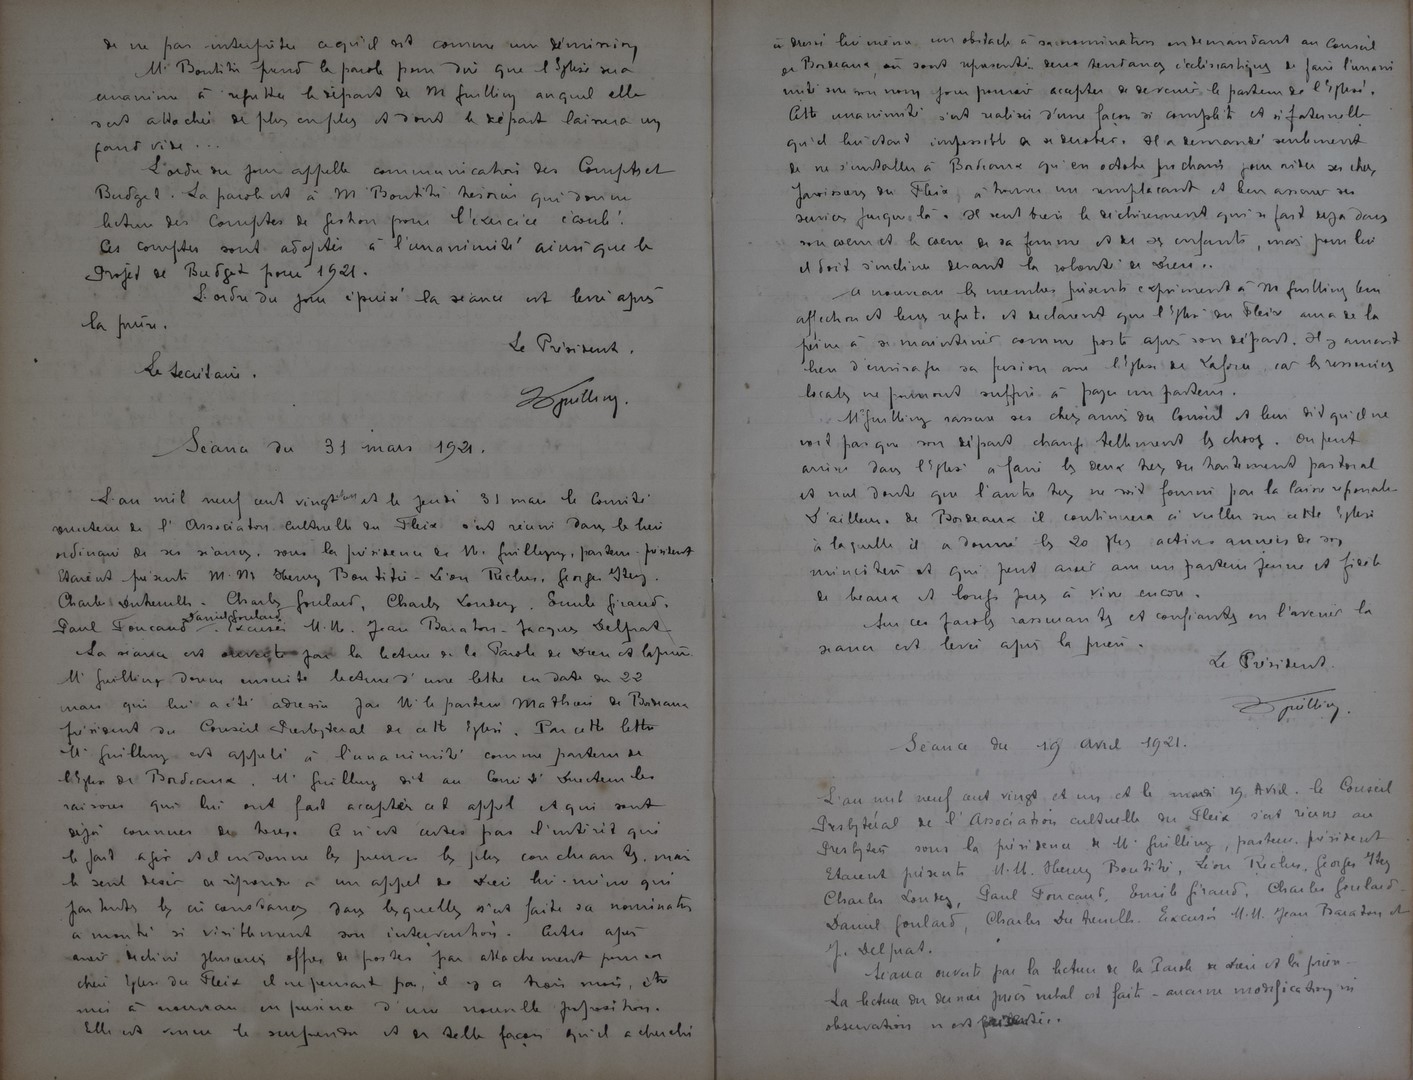 de ne pas interpréter ce qu'il dit comme une démission
Mr Boutitie prend la parole pour dire que l'Eglise sera
unanime à regretter le départ de M Guilling auquel elle
est attachée de plus en plus et dont le départ laissera un
grand vide...
L'ordre du jour appelle communication des Comptes et
Budget. La parole est à M Boutitie trésorier qui donne
lecture des Comptes de Gestion pour l'exercice écoulé.
Ces comptes sont adoptés à l'unanimité ainsi que le
Projet de Budget pour 1921.
L'ordre du jour épuisé la séance est levée après
la prière.
Le Président.
Le Secrétaire.
Guilling.
Séance du 31 mars 1921.
L'an mil neuf cent vingt et un et le jeudi 31 mars le Comité
directeur de l'Association Cultuelle du Fleix s'est réuni dans le lieu
ordinaire de ses séances, sous la présidence de M. Guilling, pasteur-président
Etaient présents M.M. Henry Boutitie - Léon Riches, Georges
Charles Duteuille - Charles Goulard, Charles Londeix, Emile Giraud.
Daniel Goulard
Paul Foucaud. Excusés M.M. Jean Baraton - Jacques Delprat -
La séance est ouverte par la lecture de la Parole de Dieu et la prière.
Mr Guilling donne ensuite lecture d'une lettre en date du 22
mars qui lui a été adressée par M le pasteur Mathieu de Bordeaux
président du Conseil Presbytéral de cette Eglise. Par cette lettre
Mr Guilling est appelé à l'unanimité comme pasteur de
l'Eglise de Bordeaux. Mr Guilling dit au Comité Directeur les
raisons qui lui ont fait accepter cet appel et qui sont
déjà connues de tous. Ce n'est certes pas l'intérêt qui
le fait agir et il en donne les preuves les plus concluantes, mais
le seul désir de répondre à un appel de Dieu lui-même qui
par toutes les circonstances dans lesquelles s'est faite sa nomination
a montré si visiblement son intervention. Certes après
avoir décliné plusieurs offres de postes par attachement pour sa
chère Eglise du Fleix il ne pensait pas, il y a trois mois, être
mis à nouveau en présence d'une nouvelle proposition.
Elle est venue le surprendre et de telle façon qu'il a cherché
à dresser lui même un obstacle à sa nomination en demandant au Conseil
de Bordeaux, où sont représentées deux tendances ecclésiastiques de faire l'unani
mité sur son nom pour pouvoir accepter de devenir le pasteur de l'Eglise.
Cette unanimité s'est réalisée d'une façon si complète et si fraternelle
qu'il lui était impossible de se dérober. Il a demandé seulement
de ne s'installer à Bordeaux qu'en octobre prochain pour aider ses chers
paroissiens du Fleix à trouver un remplaçant et leur assurer ses
services jusque là. Il sent bien le déchirement qui se fait déjà dans
son coeur et le coeur de sa femme et de ses enfants, mais pour lui
il doit s'incliner devant la volonté de Dieu..
A nouveau les membres présents expriment à M Guilling leur
affection et leurs regrets et déclarent que l'Eglise du Fleix aura de la
peine à se maintenir comme poste après son départ. Il y aurait
lieu d'envisager sa fusion avec l'Eglise de Laforce car les ressources
locales ne pourront suffire à payer un pasteur.
Mr Guilling rassure ses chers amis du Conseil et leur dit qu'il ne
voit pas que son départ change tellement les choses. On peut
arriver dans l'Eglise à faire les deux tiers du traitement pastoral
et nul doute que l'autre tiers ne soit fourni par la caisse régionale.
D'ailleurs de Bordeaux il continuera à veiller sur cette Eglise
à laquelle il a donné les 20 plus actives années de son
ministère et qui peut avoir avec un pasteur jeune et fidèle
de beaux et longs jours à vivre encore.
Sur ces paroles rassurantes et confiantes en l'avenir la
séance est levée après la prière.
Le Président.
Guilling.
Séance du 19 Avril 1921.
L'an mil neuf cent vingt et un et le mardi 19 Avril. le Conseil
Presbytéral de l'Association cultuelle du Fleix s'est réuni au
Presbytère sous la présidence de Mr Guilling, pasteur, président
Etaient présents M.M. Henry Boutitie, Léon Riches, Georges
Charles Londeix, Paul Foucaud, Emile Giraud, Charles Goulard -
Daniel Goulard, Charles Duteuille. Excusés M.M. Jean Baraton et
J. Delprat.
Séance ouverte par la lecture de la Parole de Dieu et la prière -
La lecture du dernier procès verbal est faite - aucune modification ni
observation n'est présentée.